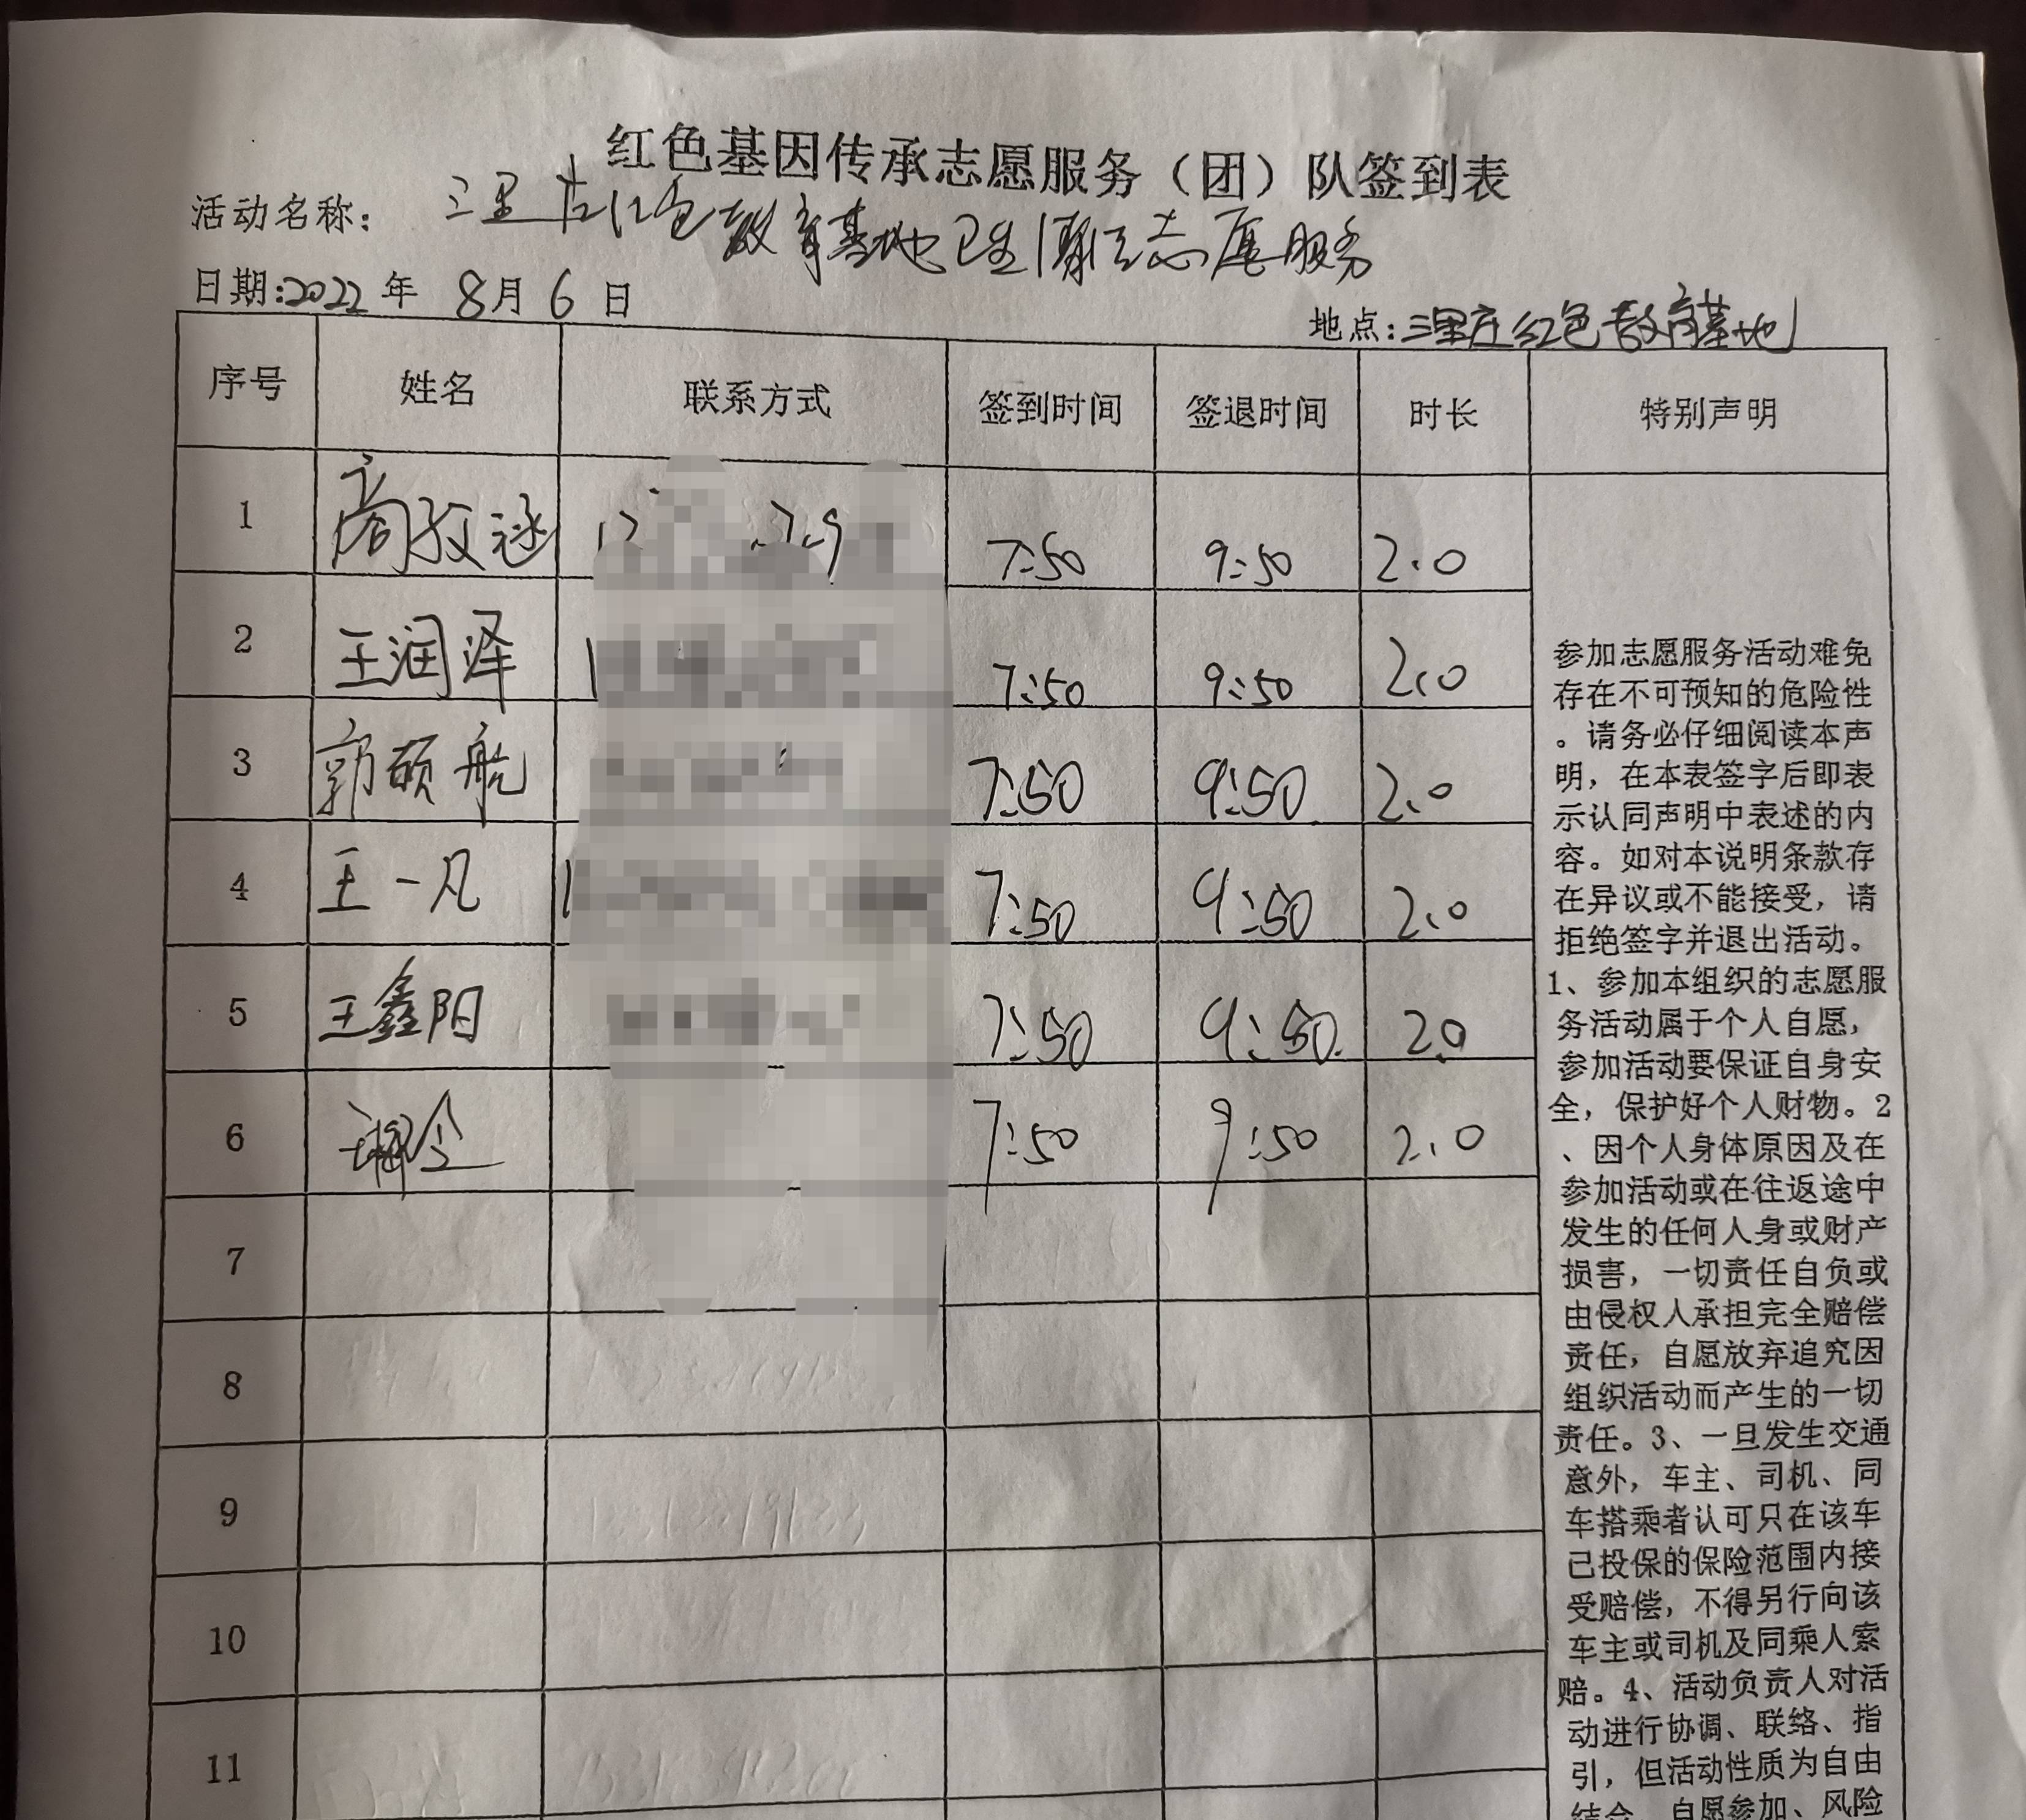 红色基因传承志愿服务（团）队签到表
活动名称： 三里庄红色教育基地卫生清洁志愿服务
日期:2022年 8月 6 日
地点:三里庄红色教育基地
序号 姓名 联系方式 签到时间 签退时间 时长 特别声明
1 7:50 9:50 2.0
2 王润泽 7:50 9:50 2.0
3 郭硕航 7:50 9:50 2.0
4 王一凡 7:50 9:50 2.0
5 王鑫阳 7:50 9:50. 2.0
6 7:50 9:50 2.0
7
8
9
10
11
参加志愿服务活动难免
存在不可预知的危险性
。请务必仔细阅读本声
明，在本表签字后即表
示认同声明中表述的内
容。如对本说明条款存
在异议或不能接受，请
拒绝签字并退出活动。
1、参加本组织的志愿服
务活动属于个人自愿，
参加活动要保证自身安
全，保护好个人财物。2
、因个人身体原因及在
参加活动或在往返途中
发生的任何人身或财产
损害，一切责任自负或
由侵权人承担完全赔偿
责任，自愿放弃追究因
组织活动而产生的一切
责任。3、一旦发生交通
意外，车主、司机、同
车搭乘者认可只在该车
已投保的保险范围内接
受赔偿，不得另行向该
车主或司机及同乘人索
赔。4、活动负责人对活
动进行协调、联络、指
引，但活动性质为自由
结合、自愿参加、风险